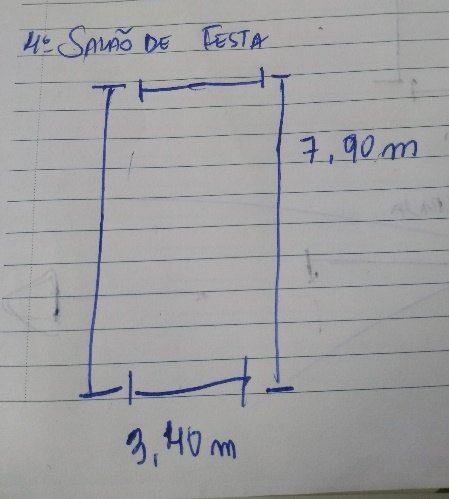 4º SALÃO DE FESTA
7,90 m
3,40 m